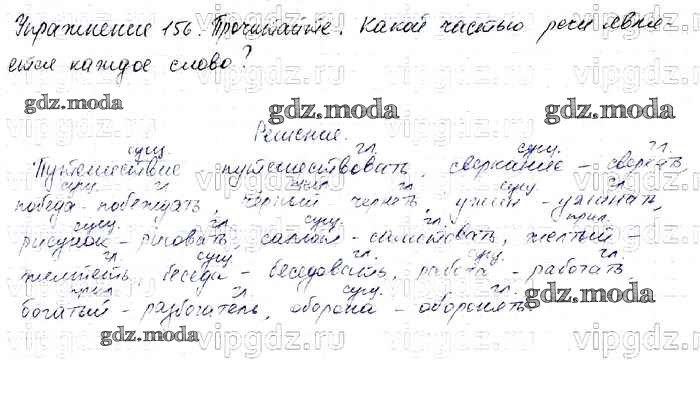 Упражнение 156. Прочитайте. Какой частью речи явля-
ется каждое слово?
gdz.moda gdz.moda gdz.moda
Решение.
сущ. гл. сущ. гл.
Путешествие путешествовать, сверкание - сверкать,
сущ. гл. прил. гл. сущ. гл.
победа - побеждать, чёрный чернеть ужин - ужинать,
сущ. гл. сущ. гл. прил.
рисунок - рисовать, салют - салютовать, желтый -
гл. сущ. гл. сущ. гл.
желтеть, беседа - беседовать, работа - работать,
прил. гл. сущ. гл.
богатый - разбогатель, оборона - оборонять
gdz.moda gdz.moda gdz.moda
vipgdz.com